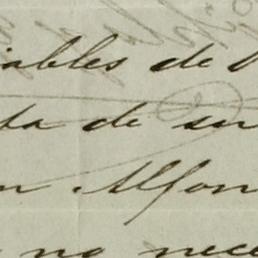 iables de
da de su
n Alfon
no nece